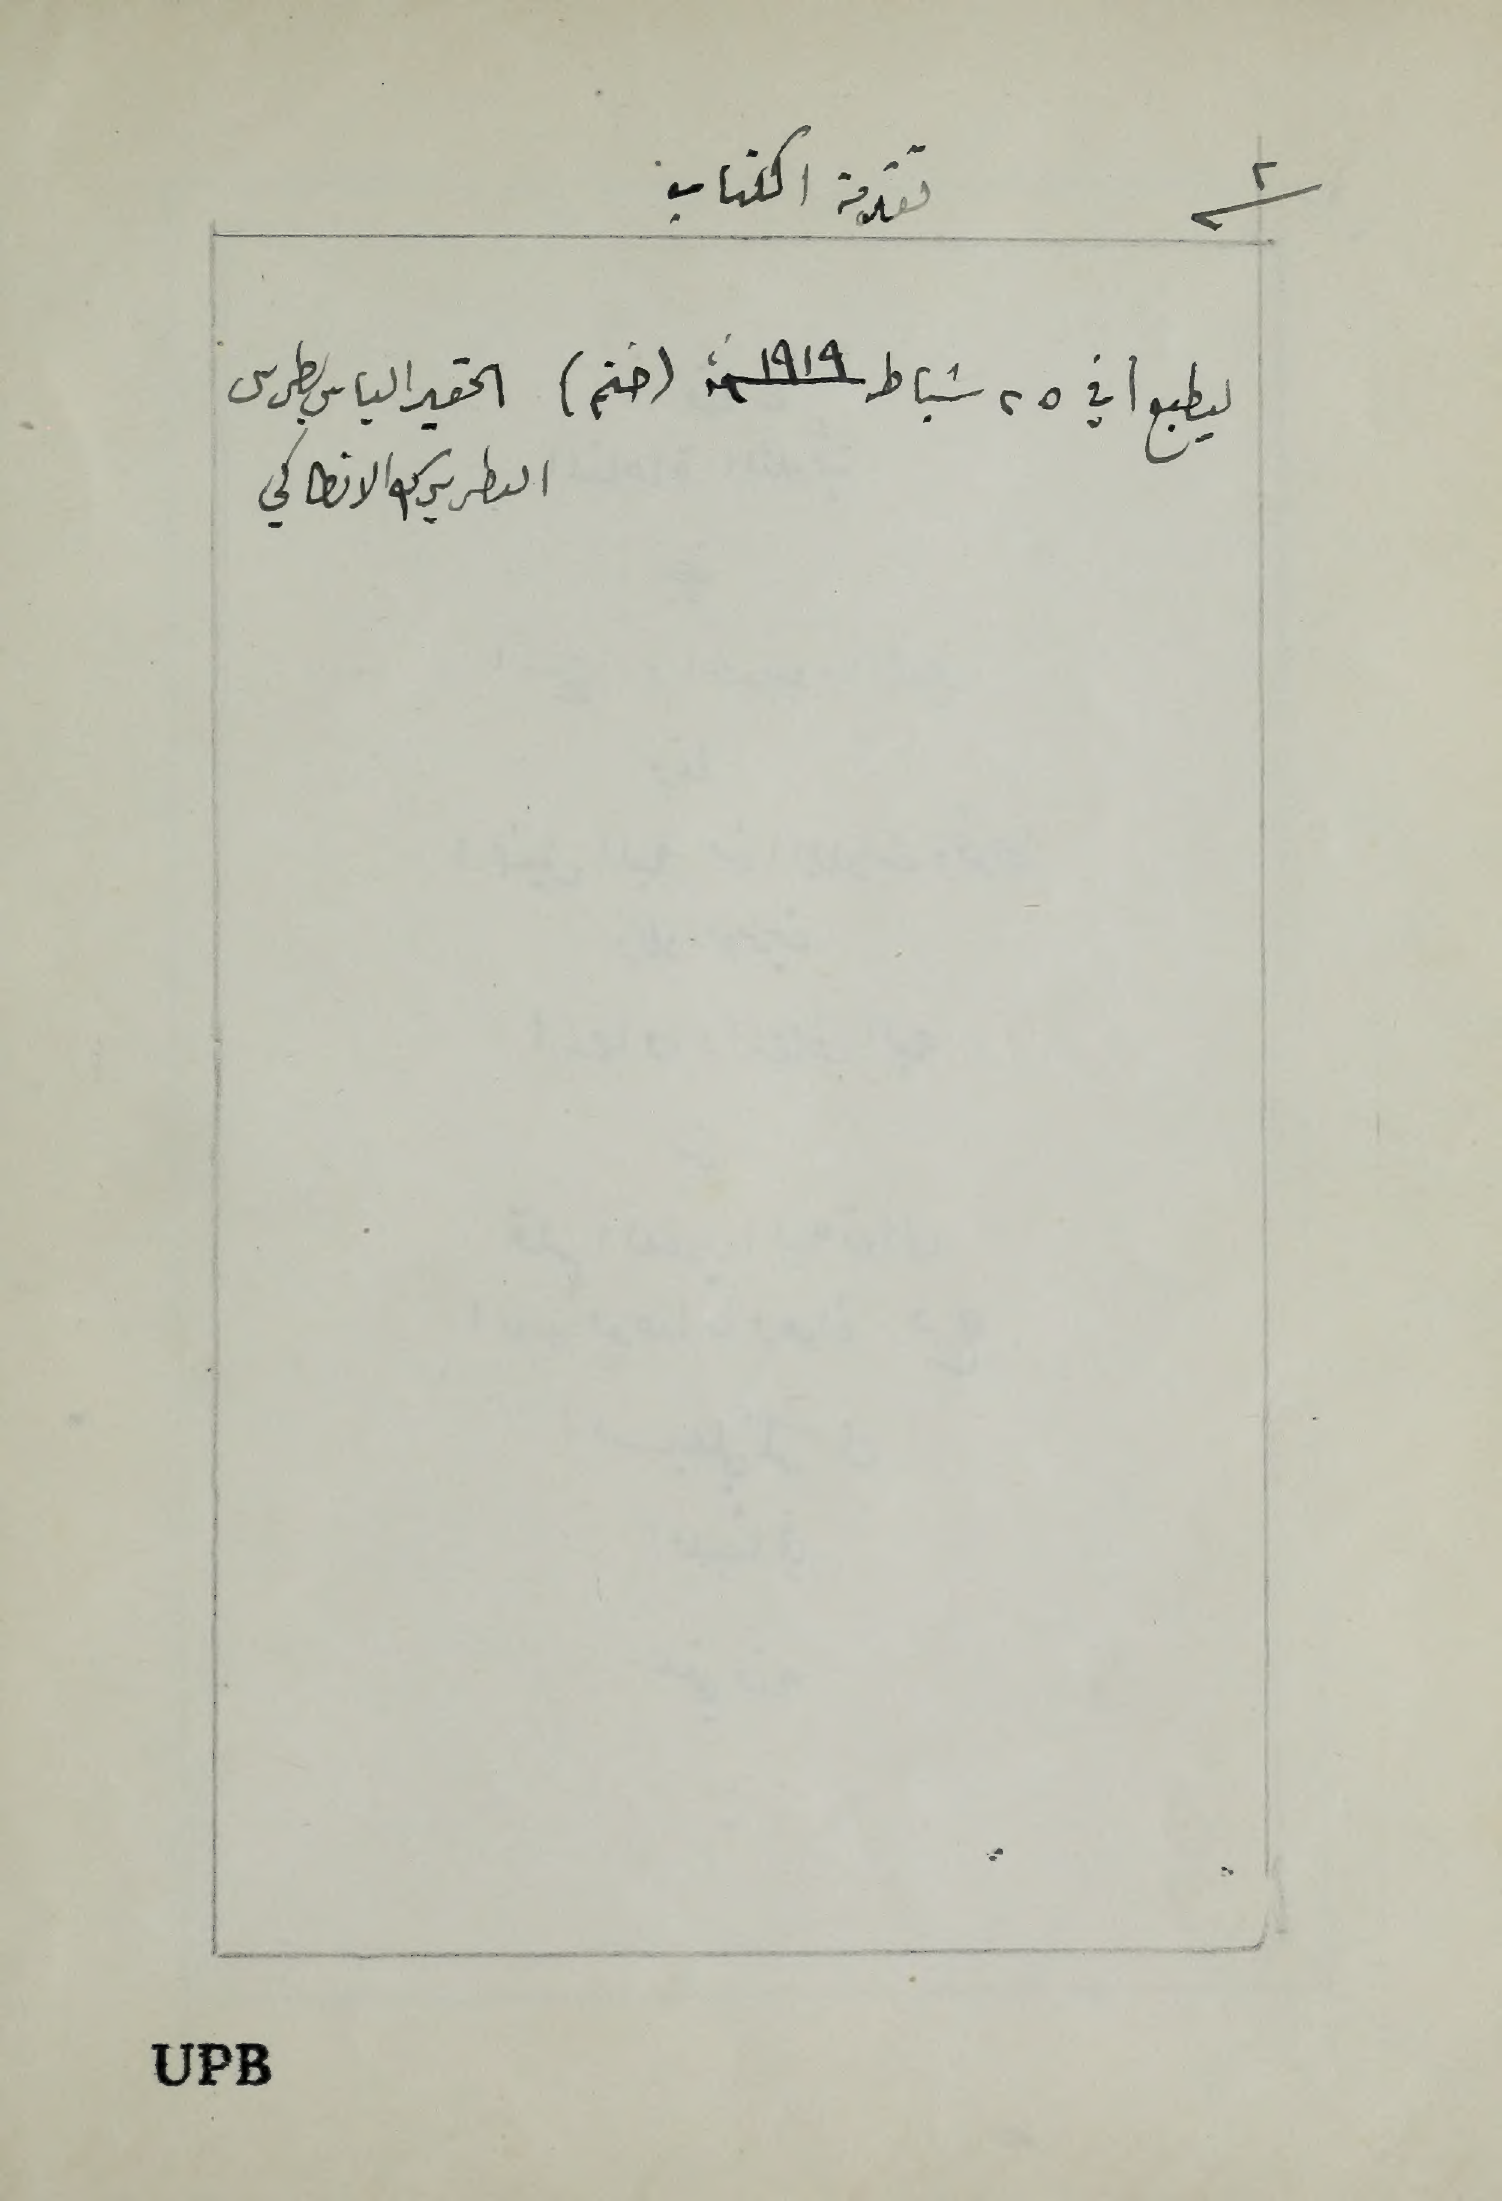 ٢
تقدمة الكتاب
ليطبع في ٢٥ شباط سنة ١٩١٩ (ختم) الحقير الياس بطرس
البطريرك الانطاكي
UPB